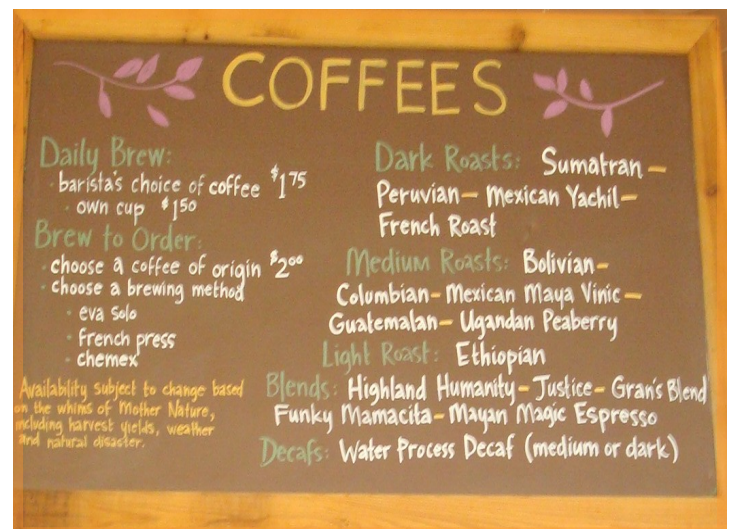 COFFEES
Daily Brew:
· barista's choice of coffee $1.75
· own cup $1.50
Brew to Order:
· choose a coffee of origin $2.00
· choose a brewing method
· eva solo
· french press
· chemex
Availability subject to change based
on the whims of Mother Nature,
including harvest yields, weather
and natural disaster.
Dark Roasts: Sumatran –
Peruvian – Mexican Yachil –
French Roast
Medium Roasts: Bolivian –
Columbian – Mexican Maya Vinic –
Guatemalan – Ugandan Peaberry
Light Roast: Ethiopian
Blends: Highland Humanity – Justice – Gran's Blend
Funky Mamacita – Mayan Magic Espresso
Decafs: Water Process Decaf (medium or dark)